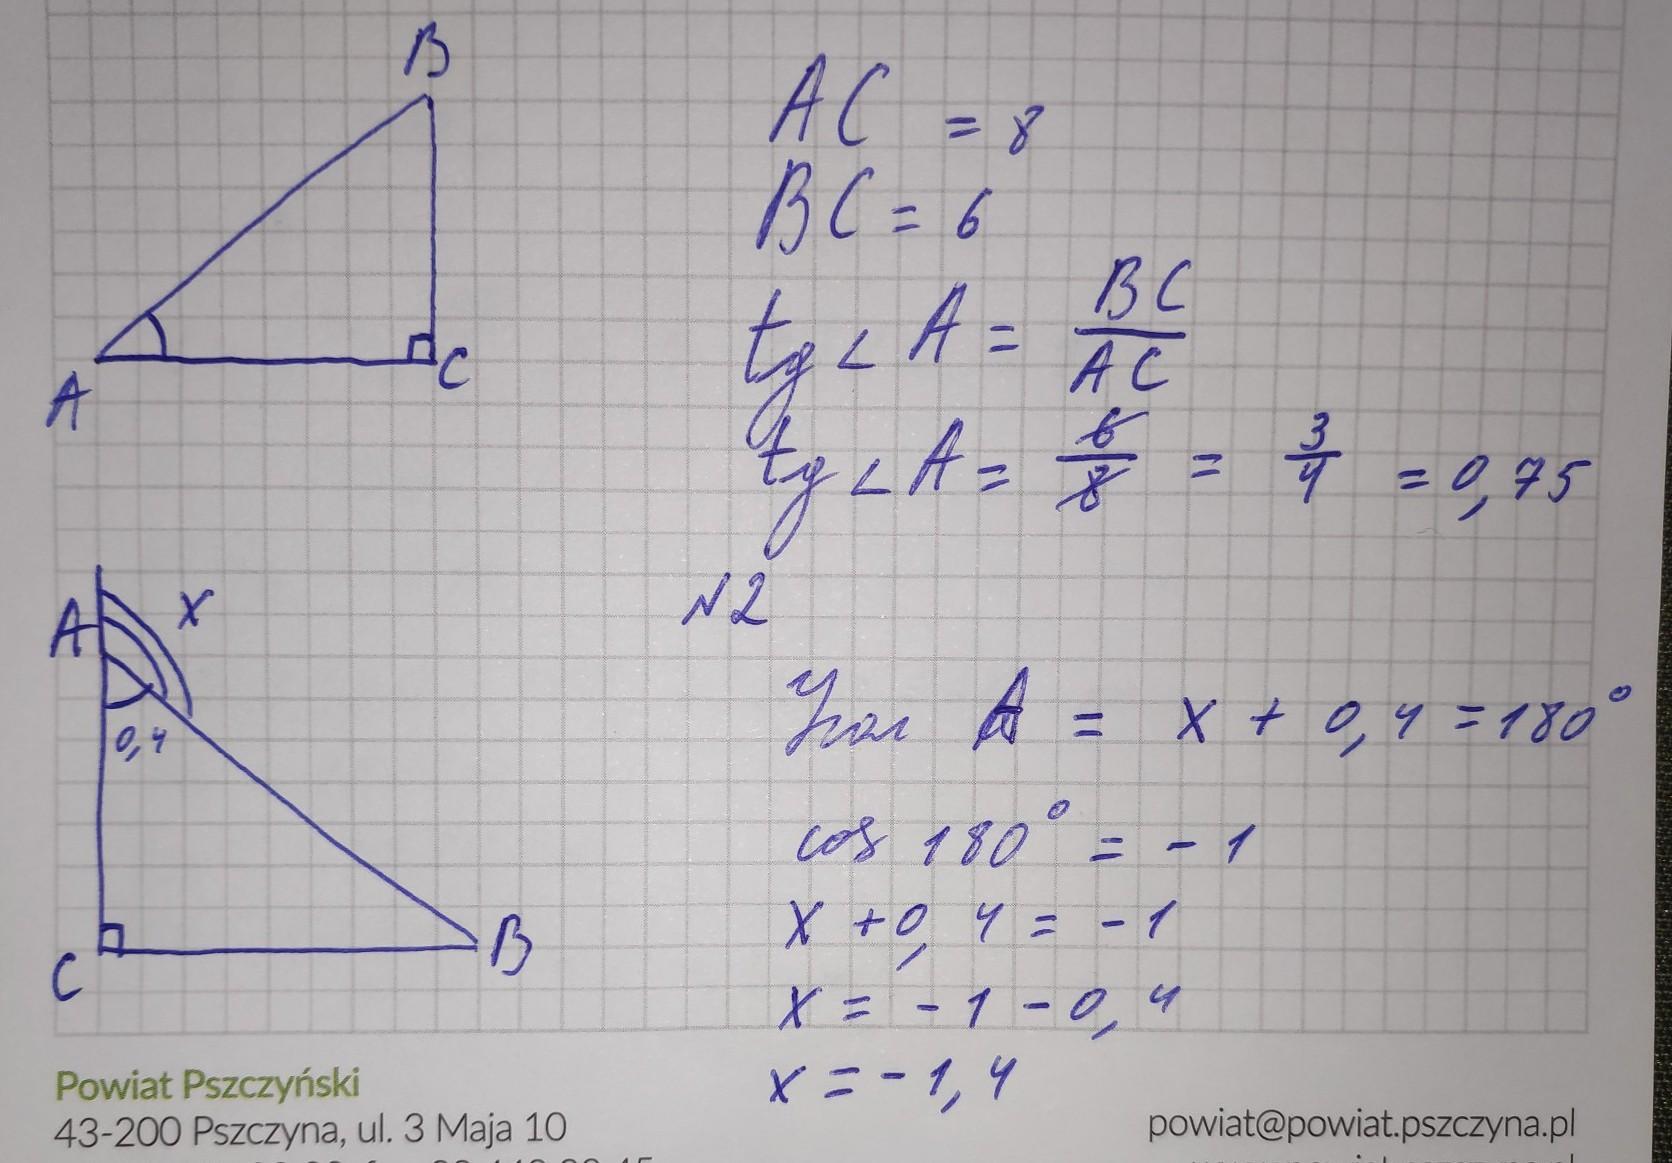 B
A
C
AC = 8
BC = 6
tg < A = BC / AC
tg < A = 6 / 8 = 3 / 4 = 0,75
N2
A
x
0,4
C
B
Угол A = x + 0,4 = 180°
cos 180° = - 1
x + 0,4 = - 1
x = - 1 - 0,4
x = - 1,4
Powiat Pszczyński
43-200 Pszczyna, ul. 3 Maja 10
powiat@powiat.pszczyna.pl